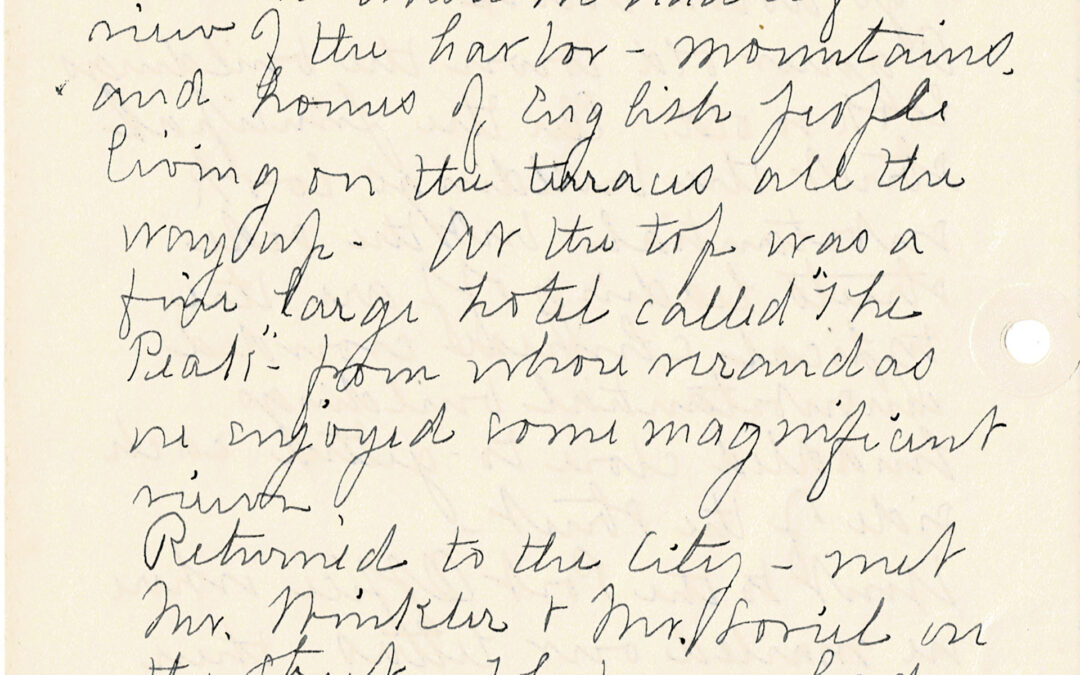 view of the harbor - mountains,
and homes of English people
living on the terraces all the
way up - At the top was a
fine large hotel called "The
Peak" - from whose verandas
we enjoyed some magnificent
views
Returned to the City - met
Mr. Winkler + Mr. on
the